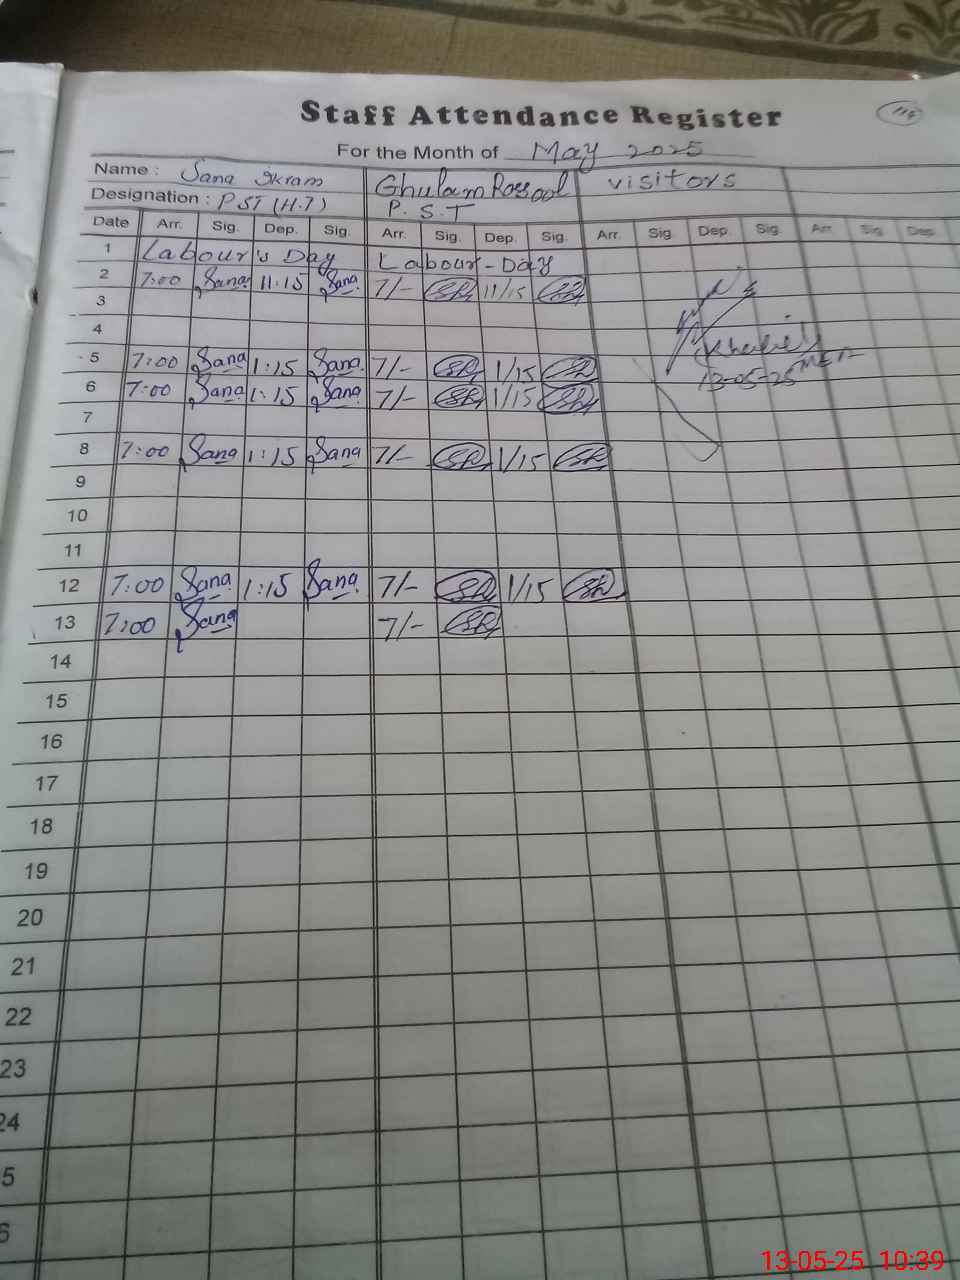 Staff Attendance Register
For the Month of May 2025
Name : Sana Ikram Ghulam Rasool visitors
Designation : PST (H.T) P.S.T
Date Arr. Sig. Dep. Sig. Arr. Sig. Dep. Sig. Arr. Sig. Dep. Sig. Arr. Sig. Dep.
1 Labour's Day Labour-Day
2 7:00 Sana 11:15 Sana 7/- 11/15
3
4
5 7:00 Sana 1:15 Sana 7/- 1/15
6 7:00 Sana 1:15 Sana 7/- 1/15
13-05-25
7
8 7:00 Sana 1:15 Sana 7/- 1/15
9
10
11
12 7:00 Sana 1:15 Sana 7/- 1/15
13 7:00 Sana 7/-
14
15
16
17
18
19
20
21
22
23
24
5
6
13-05-25 10:39